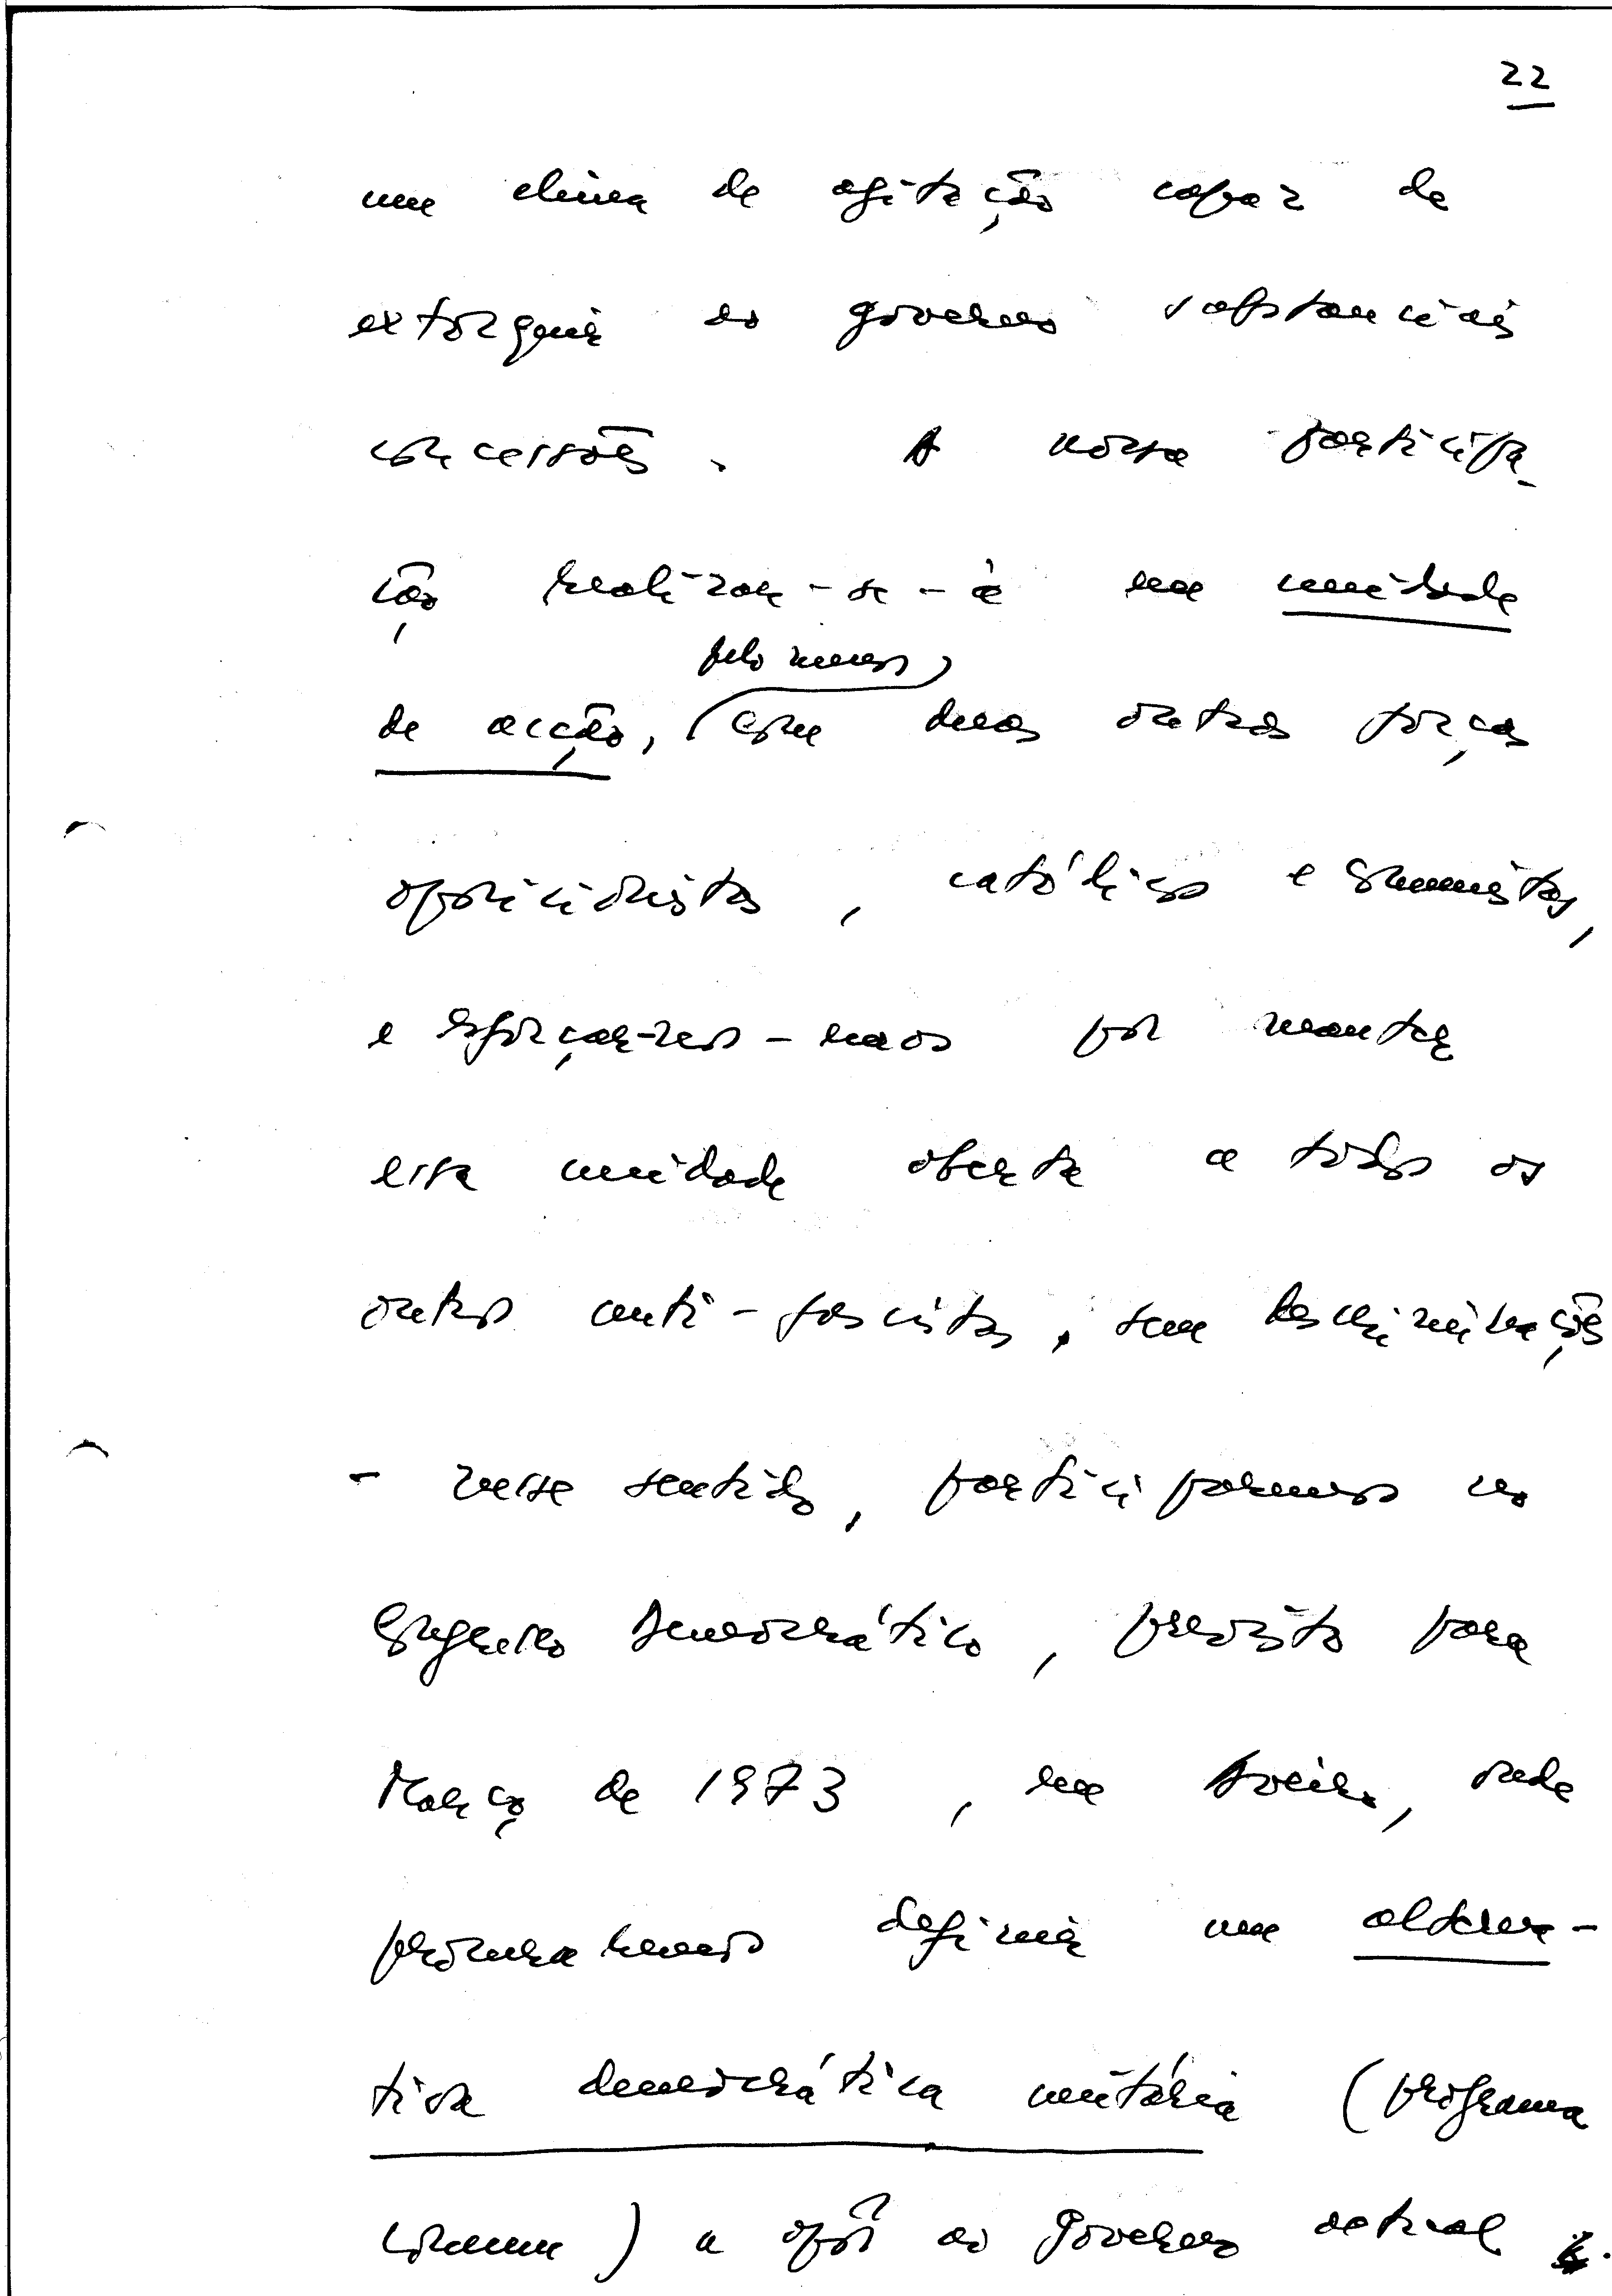 22
um clima de agitação capaz de
extorquir ao governo substanciais
concessões. A nossa participa-
ção realizar-se-á em unidade
pelo menos
de acção, com duas outras forças
oposicionistas, católicos e comunistas,
e esforçar-nos-emos por manter
essa unidade aberta a todos os
outros anti-fascistas, sem descriminações
- nesse sentido, participaremos no
Congresso Democrático, previsto para
Março de 1973, em Aveiro, onde
procuraremos definir uma alterna-
tiva democrática unitária (programa
comum) a opôr ao Governo actual.